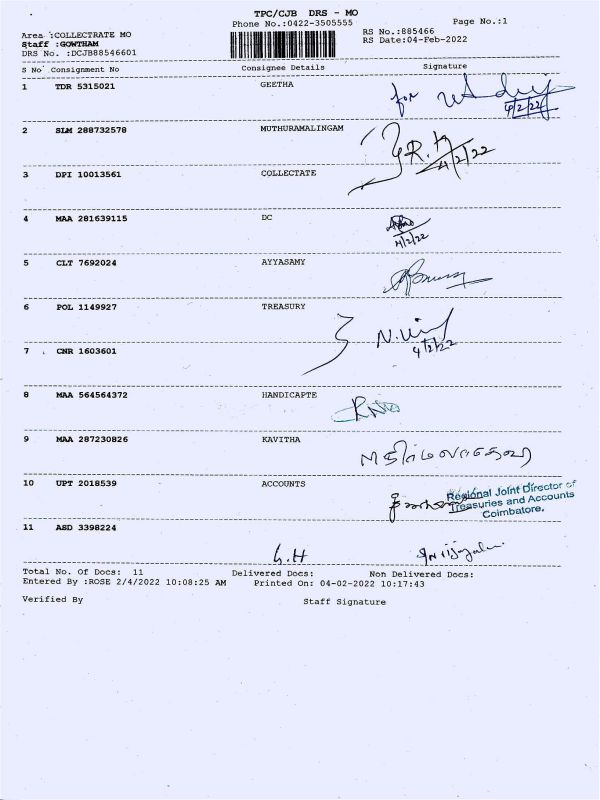 TPC/CJB DRS - MO
Phone No.:0422-3505555
Page No.:1
Area :COLLECTRATE MO
RS No.:885466
Staff :GOWTHAM
RS Date:04-Feb-2022
DRS No. :DCJB88546601
S No Consignment No Consignee Details Signature
1 TDR 5315021 GEETHA
for
4/2/22
2 SLM 288732578 MUTHURAMALINGAM
4/2/22
3 DPI 10013561 COLLECTATE
4 MAA 281639115 DC
4/2/22
5 CLT 7692024 AYYASAMY
6 POL 1149927 TREASURY
4/2/22
7 CNR 1603601
8 MAA 564564372 HANDICAPTE
9 MAA 287230826 KAVITHA
10 UPT 2018539 ACCOUNTS
Regional Joint Director of
Treasuries and Accounts
Coimbatore.
11 ASD 3398224
G.H
Total No. Of Docs: 11 Delivered Docs: Non Delivered Docs:
Entered By :ROSE 2/4/2022 10:08:25 AM Printed On: 04-02-2022 10:17:43
Verified By Staff Signature